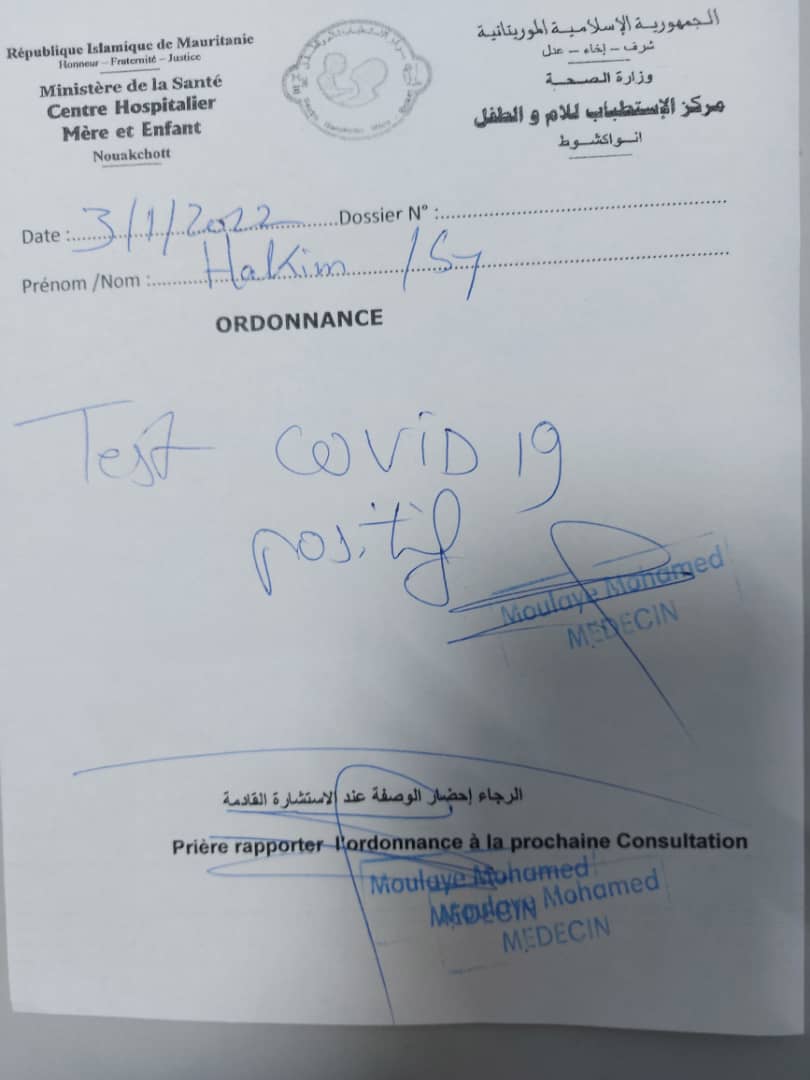 République Islamique de Mauritanie
Honneur – Fraternité – Justice
Ministère de la Santé
Centre Hospitalier
Mère et Enfant
Nouakchott
الجمهورية الإسلامية الموريتانية
شرف – إخاء – عدل
وزارة الصحة
مركز الإستطباب للام و الطفل
انواكشوط
Date : 3/1/2022 Dossier N° :
Prénom /Nom : Hakim / Sy
ORDONNANCE
Test COVID 19
positif
Moulaye Mohamed
MEDECIN
الرجاء إحضار الوصفة عند الاستشارة القادمة
Prière rapporter l'ordonnance à la prochaine Consultation
Moulaye Mohamed
MEDECIN
Moulaye Mohamed
MEDECIN